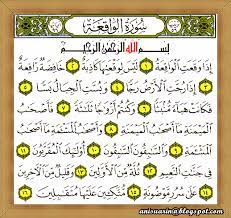 سُورَةُ الْوَاقِعَةِ
بِسْمِ اللَّهِ الرَّحْمَٰنِ الرَّحِيمِ
إِذَا وَقَعَتِ ٱلْوَاقِعَةُ ١ لَيْسَ لِوَقْعَتِهَا كَاذِبَةٌ ٢ خَافِضَةٌ رَّافِعَةٌ
٣ إِذَا رُجَّتِ ٱلْأَرْضُ رَجًّا ٤ وَبُسَّتِ ٱلْجِبَالُ بَسًّا ٥
فَكَانَتْ هَبَآءً مُّنۢبَثًّا ٦ وَكُنتُمْ أَزْوَٰجًا ثَلَٰثَةً ٧ فَأَصْحَٰبُ
ٱلْمَيْمَنَةِ مَآ أَصْحَٰبُ ٱلْمَيْمَنَةِ ٨ وَأَصْحَٰبُ ٱلْمَشْـَٔمَةِ مَآ أَصْحَٰبُ
ٱلْمَشْـَٔمَةِ ٩ وَٱلسَّٰبِقُونَ ٱلسَّٰبِقُونَ ١٠ أُو۟لَٰٓئِكَ ٱلْمُقَرَّبُونَ ١١
فِى جَنَّٰتِ ٱلنَّعِيمِ ١٢ ثُلَّةٌ مِّنَ ٱلْأَوَّلِينَ ١٣ وَقَلِيلٌ مِّنَ ٱلْءَاخِرِينَ
١٤ عَلَىٰ سُرُرٍ مَّوْضُونَةٍ ١٥ مُّتَّكِـِٔينَ عَلَيْهَا مُتَقَٰبِلِينَ ١٦
anisuarina.blogspot.com